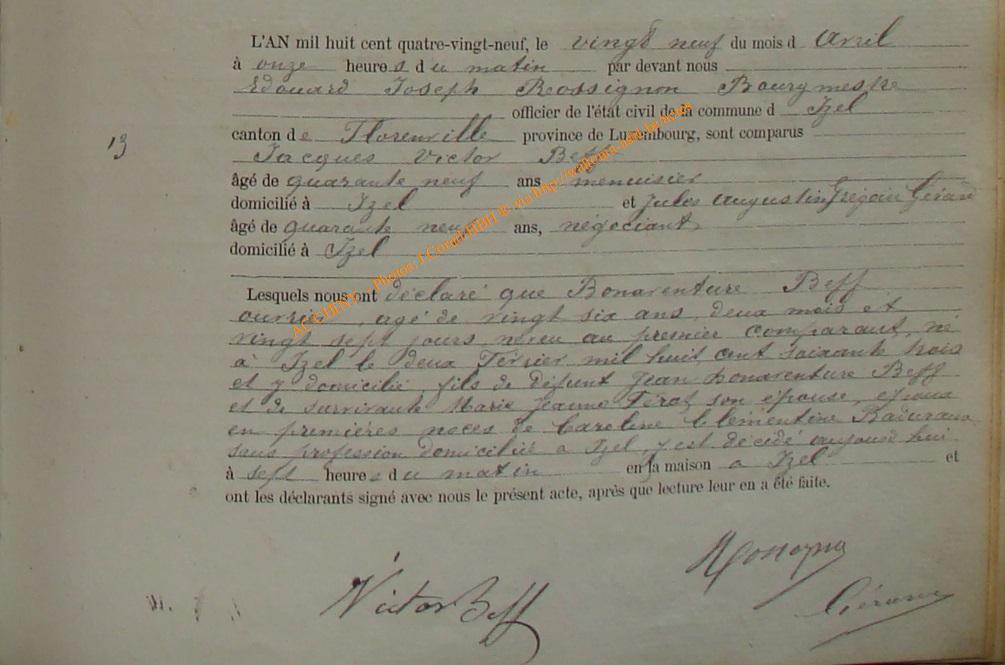 L'AN mil huit cent quatre-vingt-neuf, le vingt neuf du mois d Avril
à onze heures du matin par devant nous
Edouard Joseph Rossignon Bourgmestre
officier de l'état civil de la commune d Izel
13
canton de Florenville province de Luxembourg, sont comparus
Jacques Victor Beff
âgé de quarante neuf ans menuisier
domicilié à Izel et Jules Augustin Grégoire Gérard
âgé de quarante neuf ans, négociant
domicilié à Izel
Lesquels nous ont déclaré que Bonaventure Beff
ouvrier, agé de vingt six ans, deux mois et
vingt sept jours, neveu au premier comparant, né
à Izel le deux Février mil huit cent soixante trois
et y domicilié, fils de défunt Jean Bonaventure Beff
et de survivante Marie Jeanne son épouse, époux
en premières noces de Caroline Clémentine
sans profession domicilié à Izel, y est décédé aujourd'hui
à sept heures du matin en sa maison a Izel et
ont les déclarants signé avec nous le présent acte, après que lecture leur en a été faite.
Victor Beff
Gérard